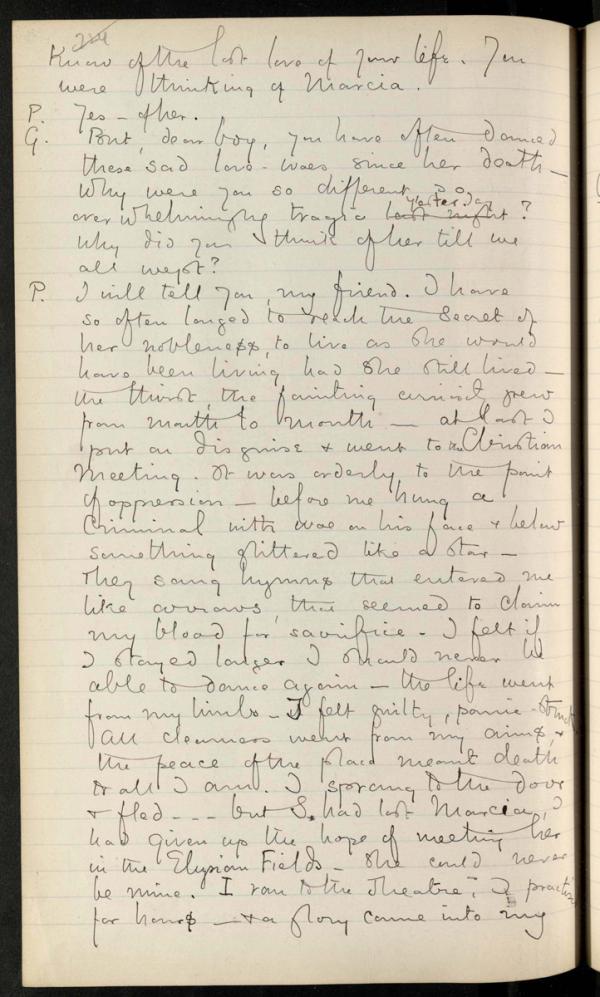 Know of the lost love of your life. You
were thinking of Marcia.
P. Yes – of her.
G. But, dear boy, you have often danced
these sad love-woes since her death –
Why were you so different, so
yesterday
overwhelmingly tragic last night?
Why did you think of her till we
all wept?
P. I will tell you, my friend. I have
so often longed to reach the secret of
her nobleness, to live as she would
have been living had she still lived –
the thirst, the fainting curiosity grew
from month to month – at last I
put on disguise & went to the Christian
Meeting. It was orderly to the point
of oppression – before me hung a
Criminal with woe on his face & below
something glittered like a star –
They sang hymns that entered me
like arrows, that seemed to claim
my blood for sacrifice. I felt if
I stayed longer I should never be
able to dance again – the life went
from my limbs – I felt guilty, panic-struck
All clearness went from my aims, &
the peace of the place meant death
to all I am. I sprang to the door
& fled - - - but I had lost Marcia, I
had given up the hope of meeting her
in the Elysian Fields – She could never
be mine. I ran to the Theatre; I practised
for hours – & a glory came into my